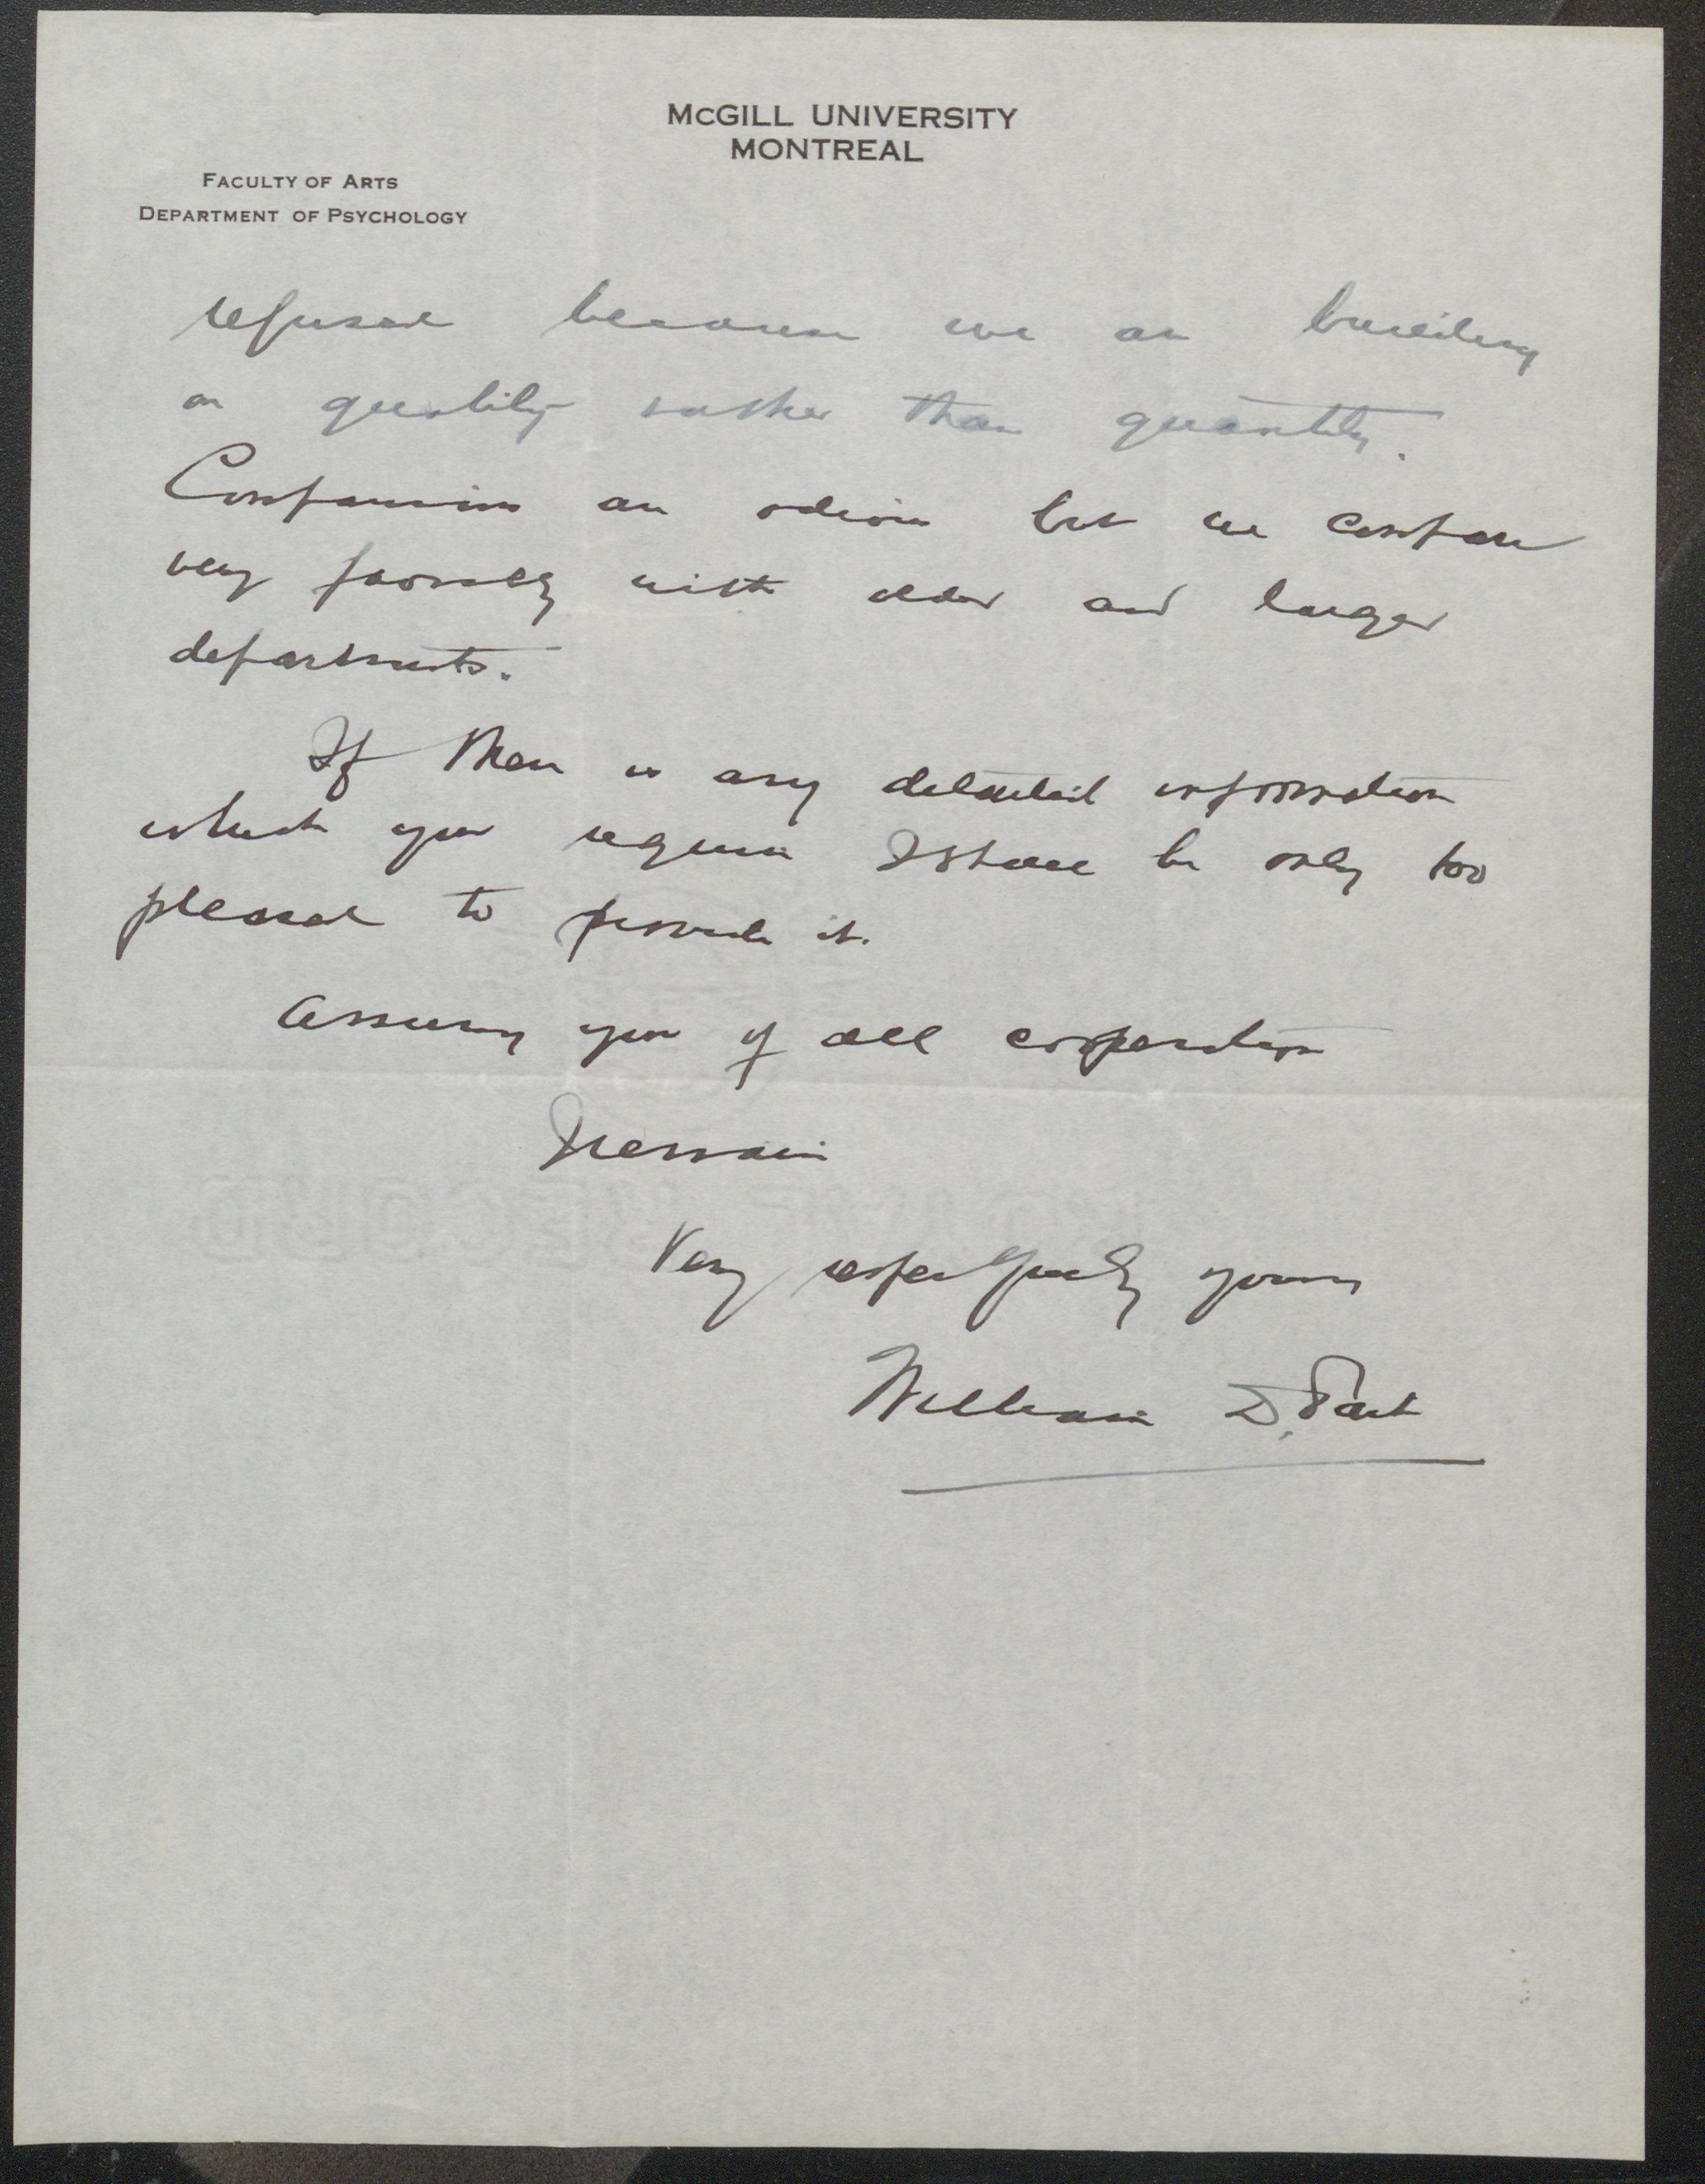 McGILL UNIVERSITY
MONTREAL
FACULTY OF ARTS
DEPARTMENT OF PSYCHOLOGY
refused because we are building
on quality rather than quantity.
Comparisons are odious but we compare
very favorably with older and larger
departments.
If there is any detailed information
which you require I shall be only too
pleased to provide it.
Assuring you of all cooperation
I remain
Very respectfully yours
William D. Tait